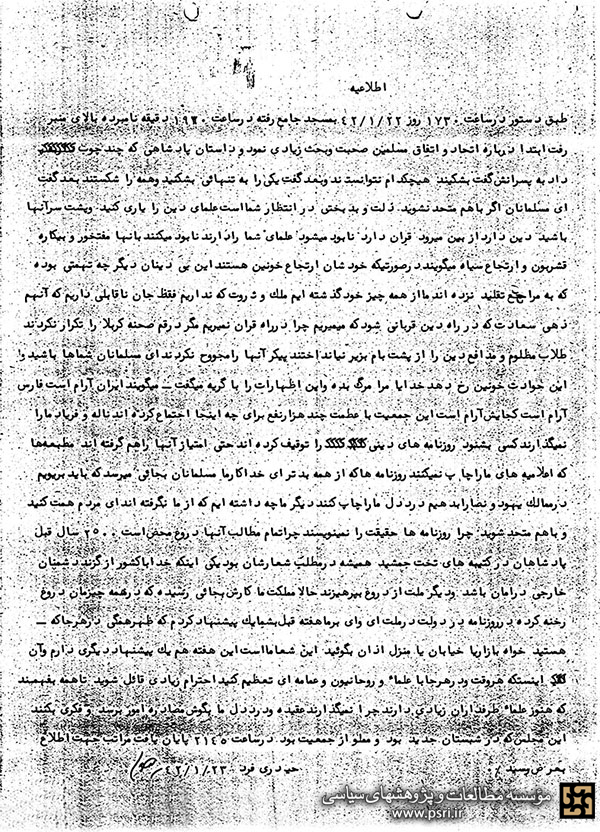 اطلاعیه
طبق دستور در ساعت ۱۷۳۰ روز ۴۲/۱/۲۲ بمسجد جامع رفته در ساعت دقیقه نامبرده بالای منبر
رفت ابتدا درباره اتحاد و اتفاق مسلمین صحبت وبحث زیادی نمود و داستان پادشاهی که چند چوب
داد به پسرانش گفت بشکنید هیچکدام نتوانستند وبعد گفت یکی را به تنهائی بشکنید وهمه را شکستند بعد گفت
ای مسلمانان اگر باهم متحد نشوید ذلت و بدبختی در انتظار شما است علمای دین را یاری کنید وپشت سر آنها
باشید دین دارد از بین میرود قران دارد نابود میشود علمای شما را دارند نابود میکنند بانها مفتخور و بیکاره
قشریون و ارتجاع سیاه میگویند در صورتیکه خودشان ارتجاع خونین هستند این بی دینان دیگر چه تهمتی بوده
که به مراجع تقلید نزده اند ما از همه چیز خود گذشته ایم ملک و ثروت که نداریم فقط جان ناقابلی داریم که آنهم
زهی سعادت که در راه دین قربانی شود که میمیریم چرا در راه قران نمیریم مگر در قم صحنه کربلا را تکرار نکردند
طلاب مظلوم و مدافع دین را از پشت بام بزیر نیانداختند پیکر آنها را مجروح نکردند ای مسلمانان شماها باشید و
این حوادث خونین رخ دهد خدایا مرا مرگ بده واین اظهارات را با گریه میگفت ــ میگویند ایران آرام است فارس
آرام است کجایش آرام است این جمعیت با عظمت چند هزار نفع برای چه اینجا اجتماع کرده اند ناله و فریاد ما را
نمیگذارند کسی بشنود روزنامه های دینی را توقیف کرده اند حتی امتیاز آنها را هم گرفته اند مطبعه‌ها
که اعلامیه های ما را چاپ نمیکنند روزنامه ها که از همه بدتر ای خدا کار ما مسلمانان بجائی میرسد که باید برویم
در ممالک یهود و نصارا بدهیم درد دل ما را چاپ کنند دیگر ما چه داشته ایم که از ما نگرفته اند ای مردم همت کنید
و باهم متحد شوید چرا روزنامه ها حقیقت را نمینویسند چرا تمام مطالب آنها دروغ محض است ۲۵۰۰ سال قبل
پادشاهان در کتیبه های تخت جمشید همیشه در مطلب شعارشان بود یکی اینکه خدایا کشور از گزند دشمنان
خارجی در امان باشد ودیگر ملت از دروغ بپرهیزند حالا مملکت ما کارش بجائی رسیده که در همه چیزمان دروغ
رخنه کرده در روزنامه در دولت در ملت ای وای بر ما هفته قبل بشما یک پیشنهاد کردم که ظهر هنگی در هرجا که ــ
هستید خواه بازار یا خیابان یا منزل اذان بگوئید این شعار ما است این هفته هم یک پیشنهاد دیگری دارم وآن
اینستکه هر وقت ودر هرجا با علماء و روحانیون وعمامه ای تعظیم کنید احترام زیادی قائل شوید تا همه بفهمند
که هنوز علماء طرفداران زیادی دارند چرا نمیگذارند عقیده ودرد دل ما بگوش مصادر امور برسد و فکری بکنند
این مجلس که در شبستان جدید بود و مملو از جمعیت بود در ساعت ۲۱۴۵ پایان یافت مراتب جهت اطلاع
بعرض رسید
حیدری فرد ۴۲/۱/۲۳
مؤسسه مطالعات و پژوهشهای سیاسی
www.psri.ir